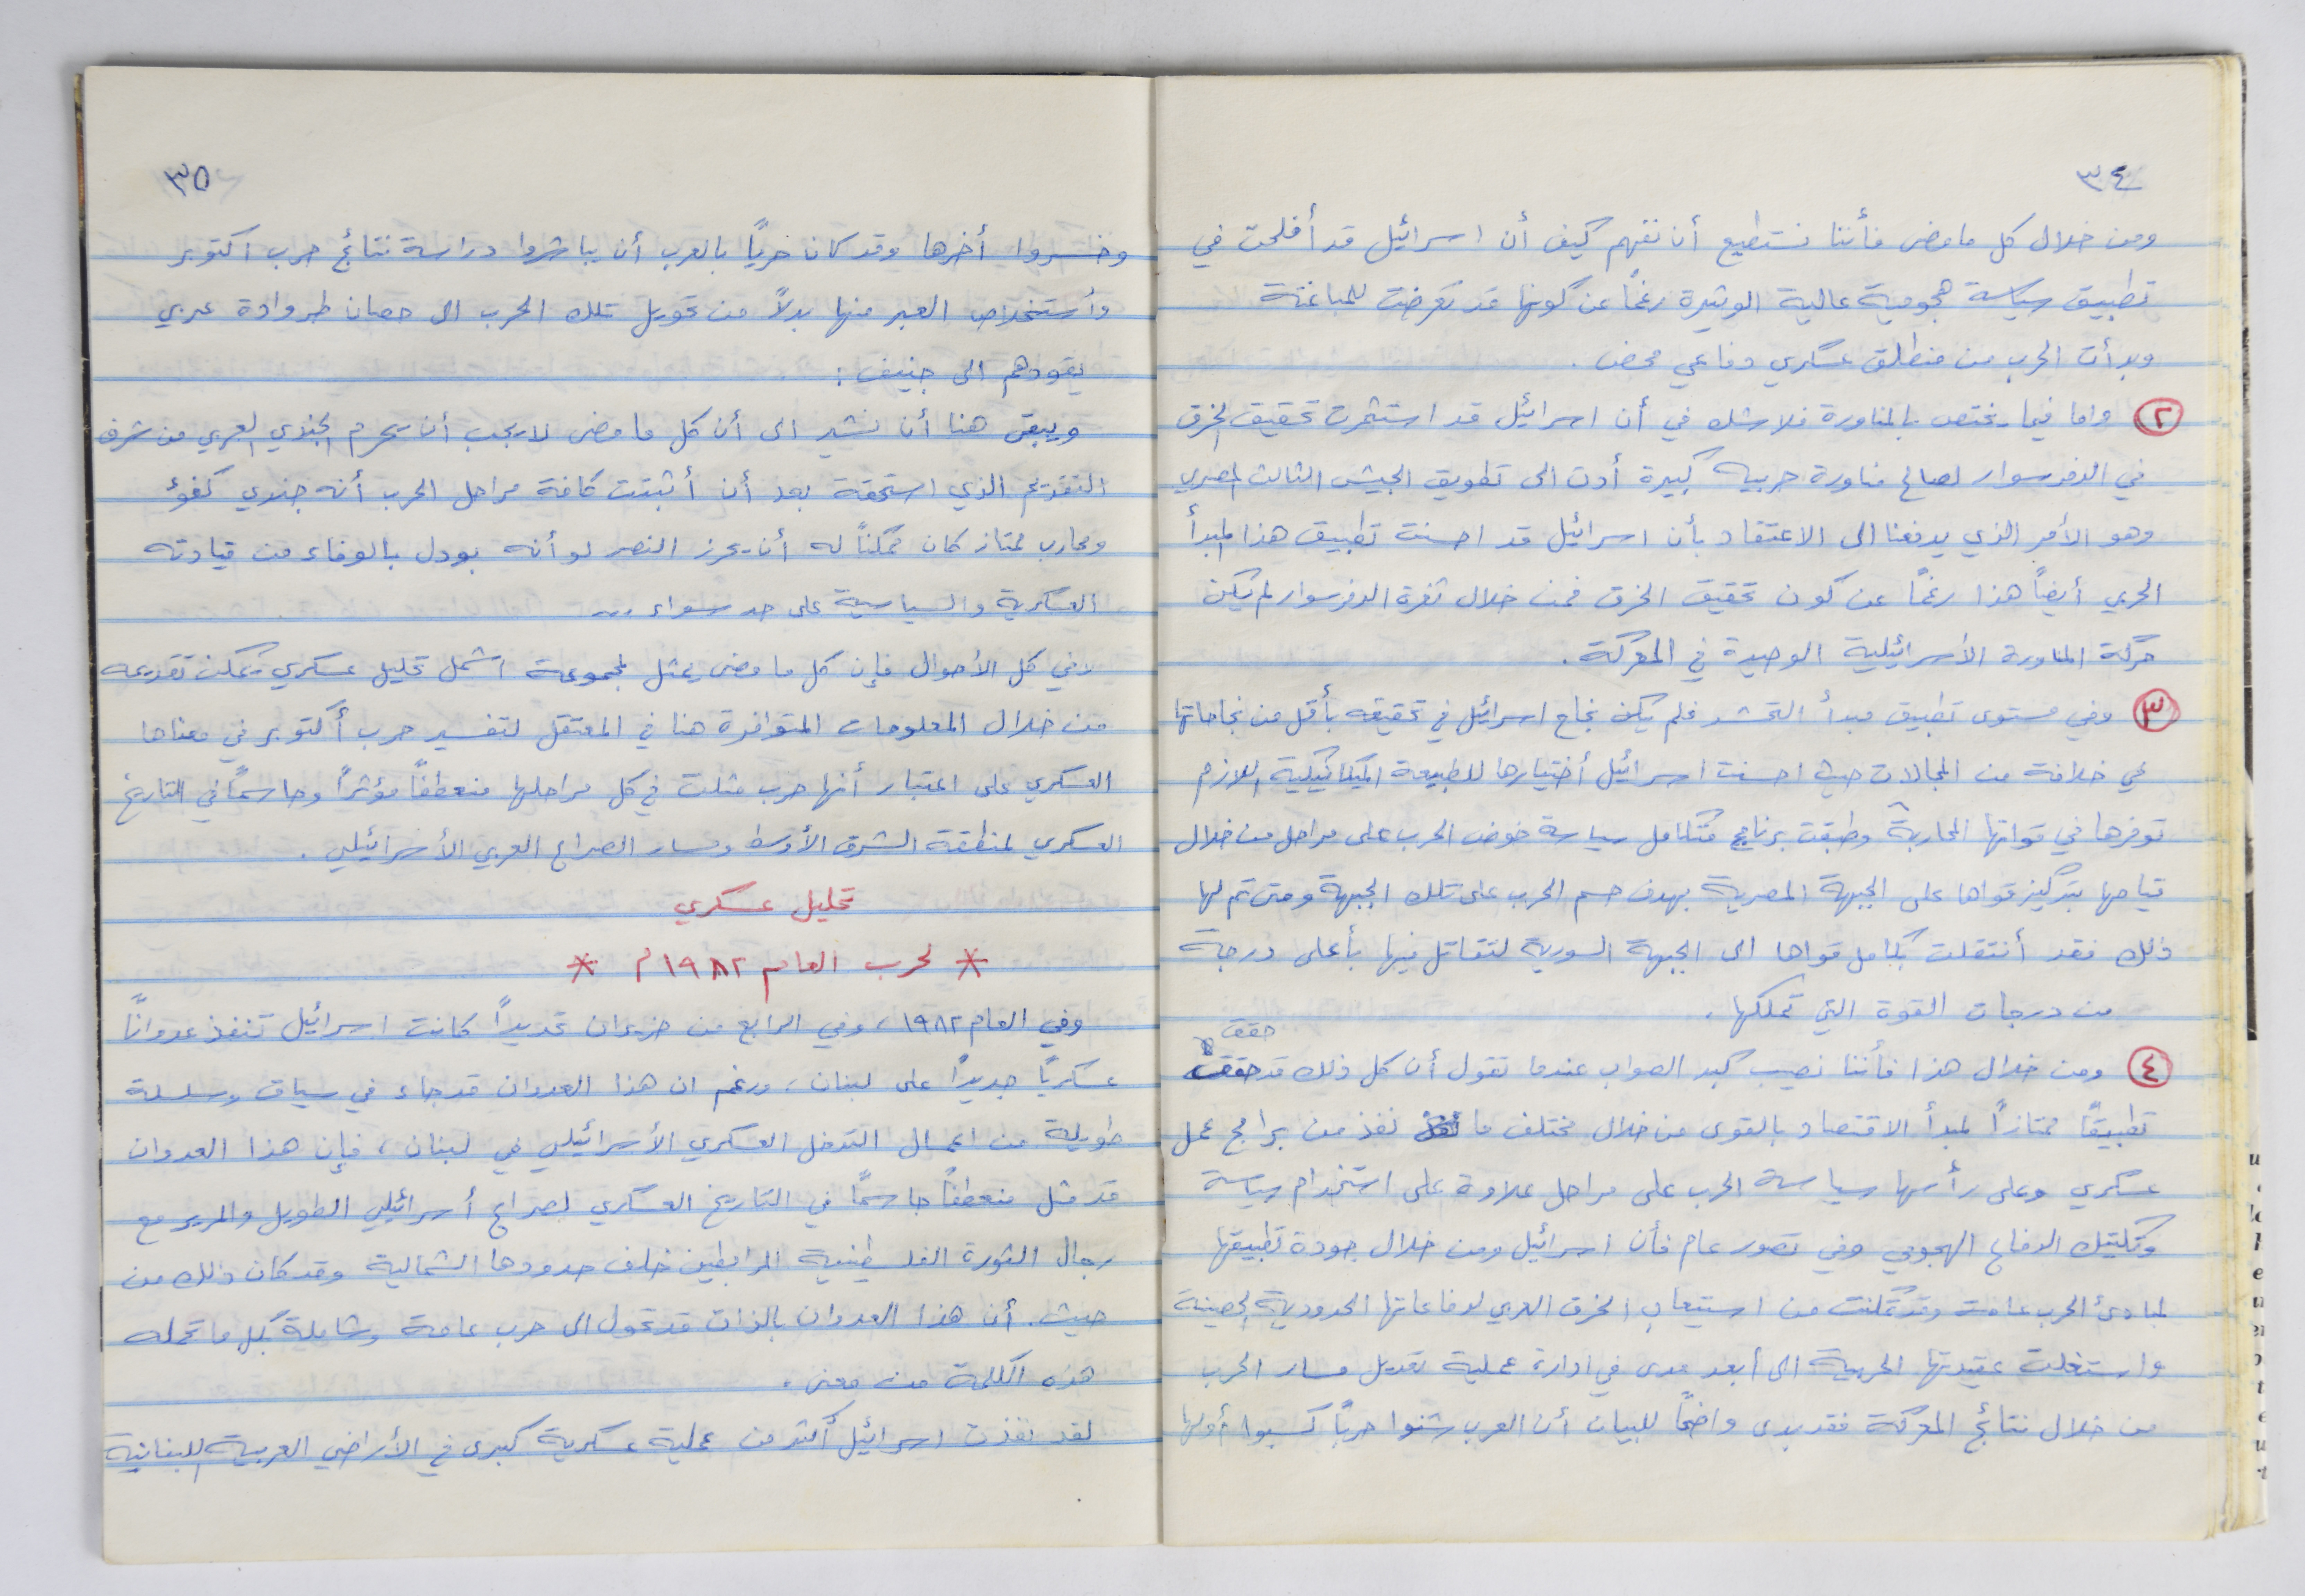 ٣٤
ومن خلال كل ما مضى فأننا نستطيع أن نفهم كيف أن اسرائيل قد أفلحت في
تطبيق سياسة هجومية عالية الوتيرة رغماً عن كونها قد تعرضت للمباغتة
وبدأت الحرب من منطلق عسكري دفاعي محض .
٢ واما فيما يختص بالمناورة فلا شك في أن اسرائيل قد استثمرت تحقيق الخرق
في الدفرسوار لصالح مناورة حربية كبيرة أدت الى تطويق الجيش الثالث المصري
وهو الأمر الذي يدفعنا الى الاعتقاد بأن اسرائيل قد احسنت تطبيق هذا المبدأ
الحربي أيضاً هذا رغماً عن كون تحقيق الخرق فمن خلال ثغرة الدفرسوار لم يكن
حركة المناورة الأسرائيلية الوحيدة في المعركة .
٣ وفي مستوى تطبيق مبدأ التحشد فلم يكن نجاح اسرائيل في تحقيقه بأقل من نجاحاتها
في خلافة من المجالات حيث احسنت اسرائيل أختيارها للطبيعة الميكانيكية اللازم
توفرها في قواتها المحاربة وطبقت برنامج متكامل سياسة خوض الحرب على مراحل من خلال
قيامها بتركيز قواها على الجبهة المصرية بهدف حسم الحرب على تلك الجبهة ومتى تم لها
ذلك فقد أنتقلت بكامل قواها الى الجبهة السورية لتقاتل فيها بأعلى درجة
من درجات القوة التي تملكها .
حقق
٤ ومن خلال هذا فأننا نصيب كبد الصواب عندما نقول أن كل ذلك قد حققت
تطبيقاً ممتازاً لمبدأ الاقتصاد بالقوى من خلال مختلف ما نفذ من برامج عمل
عسكري وعلى رأسها سياسة الحرب على مراحل علاوة على استخدام سياسة
وتكتيك الدفاع الهجومي وفي تصور عام فأن اسرائيل ومن خلال جودة تطبيقها
لمبادئ الحرب عامة وقد تمكنت من استيعاب الخرق العربي لدفاعاتها الحدودية الحصينة
واستغلت عقيدتها الحربية الى أبعد مدى في ادارة عملية تعديل مسار الحرب
من خلال نتائج المعركة فقد بدى واضحاً للبيان أن العرب شنوا حرباً كسبوا أولها
٣٥
وخسروا أخرها وقد كان حرياً بالعرب أن يباشروا دراسة نتائج حرب اكتوبر
وأستخلاص العبر منها بدلاً من تحويل تلك الحرب الى حصان طروادة عربي
يقودهم الى جنيف :
ويبقى هنا أن نشير الى أن كل ما مضى لا يجب أن يحرم الجندي العربي من شرف
التقديم الذي استحقه بعد أن أثبتت كافة مراحل الحرب أنه جندي كفؤ
ومحارب ممتاز كان ممكناً له أن يحرز النصر لو أنه بودل بالوفاء من قيادته
العسكرية والسياسية على حد سواء ...
وفي كل الأحوال فإن كل ما مضى يمثل لمجموعة اشمل تحليل عسكري يمكن تقديمه
من خلال المعلومات المتوافرة هنا في المعتقل لتفسير حرب أكتوبر في معناها
العسكري على اعتبار أنها حرب مثلت في كل مراحلها منعطفاً مؤثراً وحاسماً في التاريخ
العسكري لمنطقة الشرق الأوسط ومسار الصراع العربي الأسرائيلي .
تحليل عسكري
* لحرب العام ١٩٨٢م *
وفي العام ١٩٨٢ ، وفي الرابع من حزيران تحديداً كانت اسرائيل تنفذ عدواناً
عسكرياً جديداً على لبنان ، ورغم ان هذا العدوان قد جاء في سياق وسلسلة
طويلة من اعمال التدخل العسكري الأسرائيلي في لبنان ، فإن هذا العدوان
قد مثل منعطفاً حاسماً في التاريخ العسكري لصراع أسرائيلي الطويل والمرير مع
رجال الثورة الفلسطينية المرابطين خلف حدودها الشمالية وقد كان ذلك من
حيث . أن هذا العدوان بالذات قد تحول الى حرب عامة وشاملة بكل ما تحمله
هذه الكلمة من معنى .
لقد نفذت اسرائيل أكثر من عملية عسكرية كبرى في الأراضي العربية اللبنانية